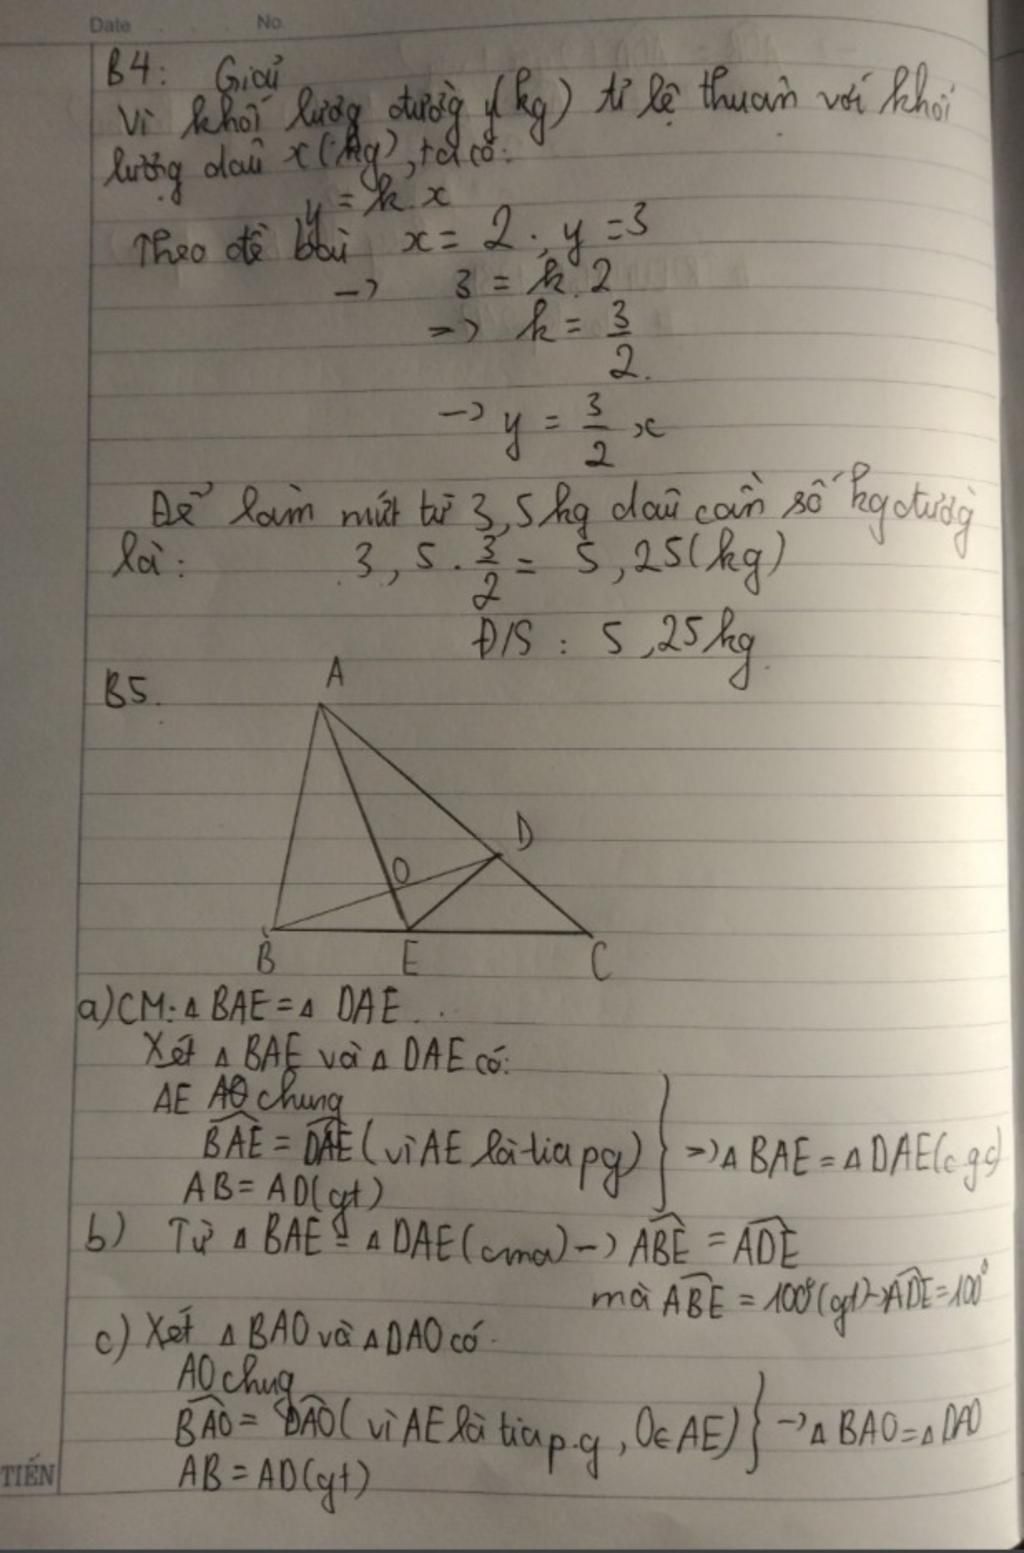 Date No.
B4: Giải
Vì khối lượng đường y(kg) tỉ lệ thuận với khối
lượng dâu x(kg), ta có:
y = k.x
Theo đề bài x = 2 ; y = 3
→ 3 = k.2
=> k = 3/2.
→ y = 3/2 x
Để làm mứt từ 3,5kg dâu cần số kg đường
là: 3,5 . 3/2 = 5,25(kg)
Đ/S : 5,25kg.
B5.
A
D
O
B E C
a) CM: Δ BAE = Δ DAE
Xét Δ BAE và Δ DAE có:
AE chung
BAE = DAE (vì AE là tia pg) } => Δ BAE = Δ DAE (c g c)
AB = AD (gt)
b) Từ Δ BAE = Δ DAE (cma) → ABE = ADE
mà ABE = 100° (gt) → ADE = 100°
c) Xét Δ BAO và Δ DAO có
AO chug
BAO = DAO ( vì AE là tia p.g , O∈AE) } → Δ BAO = Δ DAO
AB = AD (gt)
TIẾN